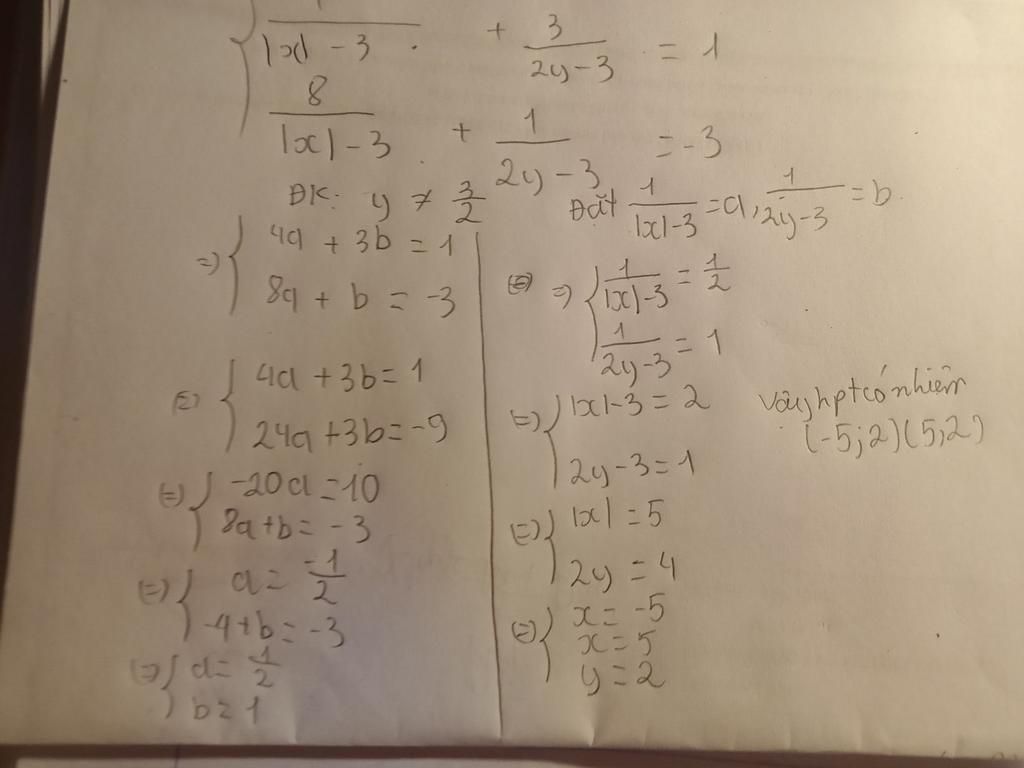 { /(|x| - 3) + 3/(2y - 3) = 1
8/(|x| - 3) + 1/(2y - 3) = -3
ĐK: y ≠ 3/2 Đặt 1/(|x| - 3) = a, 1/(2y - 3) = b
=> { 4a + 3b = 1
8a + b = -3
<=> { 4a + 3b = 1
24a + 3b = -9
<=> { -20a = 10
8a + b = -3
<=> { a = -1/2
-4 + b = -3
<=> { a = -1/2
b = 1
=> { 1/(|x| - 3) = 1/2
1/(2y - 3) = 1
<=> { |x| - 3 = 2
2y - 3 = 1
<=> { |x| = 5
2y = 4
<=> { x = -5
x = 5
y = 2
Vậy hpt có nhiệm
(-5; 2) (5; 2)